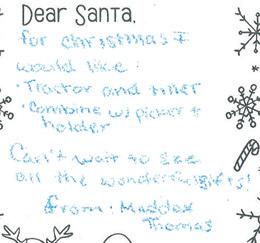 Dear Santa,
for christmas I
would like:
• Tractor and tiller
• Combine w/ picker +
holder
Can't wait to see
all the wonderful gifts!
From: Maddox
Thomas